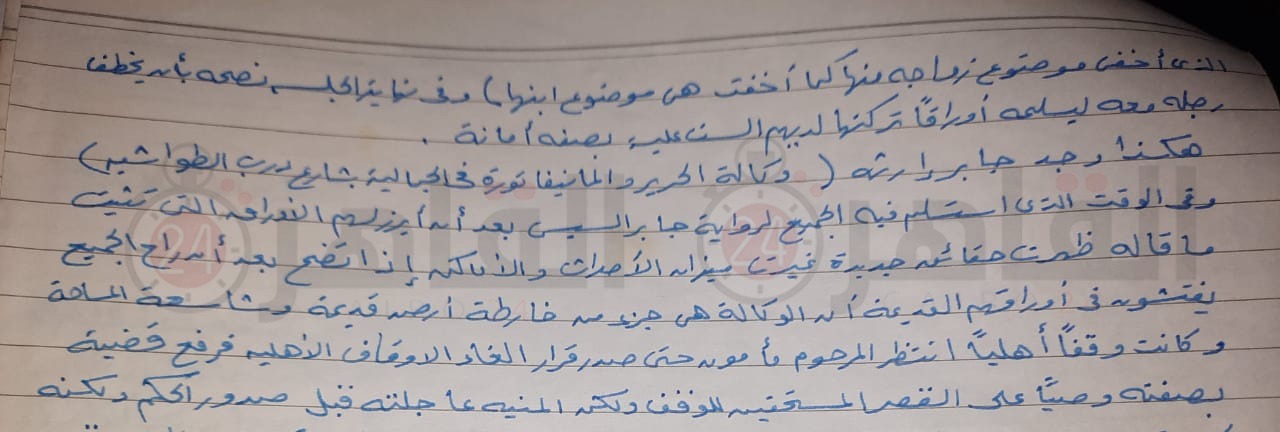 الذى أخفى موضوع زواجه منها كما أخفت هى موضوع ابنها) وفى نهاية المجلس نصحه بأن يخطف
رجله معه ليسلمه أوراقاً تركتها لديهم الست علية بصفة أمانة .
هكذا وجد جابر إرثه ( وكالة الحرير والمانيفاتورة فى الجمالية بشارع درب الطواشى)
وفى الوقت الذى استسلم فيه الجميع لرواية جابر السيسى بعد أن أبرز لهم الأوراق التى تثبت
ما قاله ظهرت حقائق جديدة غيرت ميزان الأحداث والأماكن إذ اتضح بعد أن راح الجميع
يفتشون فى أوراقهم القديمة أن الوكالة هى جزء من خارطة أرض قديمة وشاسعة المساحة
وكانت وقفاً أهلياً انتظر المرحوم مأمون حتى صدر قرار الغاء الاوقاف الأهليه فرفع قضية
بصفته وصياً على القصر المستحقين للوقف ولكن المنيه عاجلته قبل صدور الحكم ولكنه
القاهرة 24
القاهرة 24